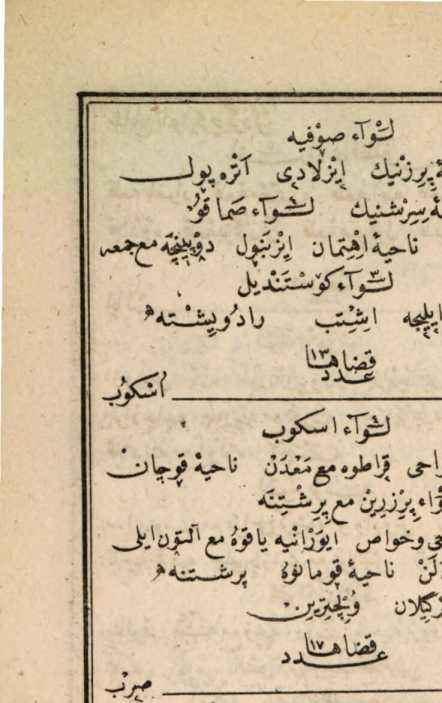 لوآء صوفيه
پرزنيك ايزلادى آثره پول
سرشنيك لوآء صماقو
ناحيهٔ اهتمان ايزنبول دوپنيچه مع جمعه
لوآء كوستنديل
اشتب رادويشته
قضاها
عدد ١٣
اسكوب
لوآء اسكوب
قراطوه مع معدن ناحيهٔ قوچان
پرزرين مع پرشتنه
وخواص ايورانيه ياقوه مع آلتون ايلى
ناحيهٔ قومانوه پرشتنه
وپلچترين
قضاها
عدد ١٧
صرب